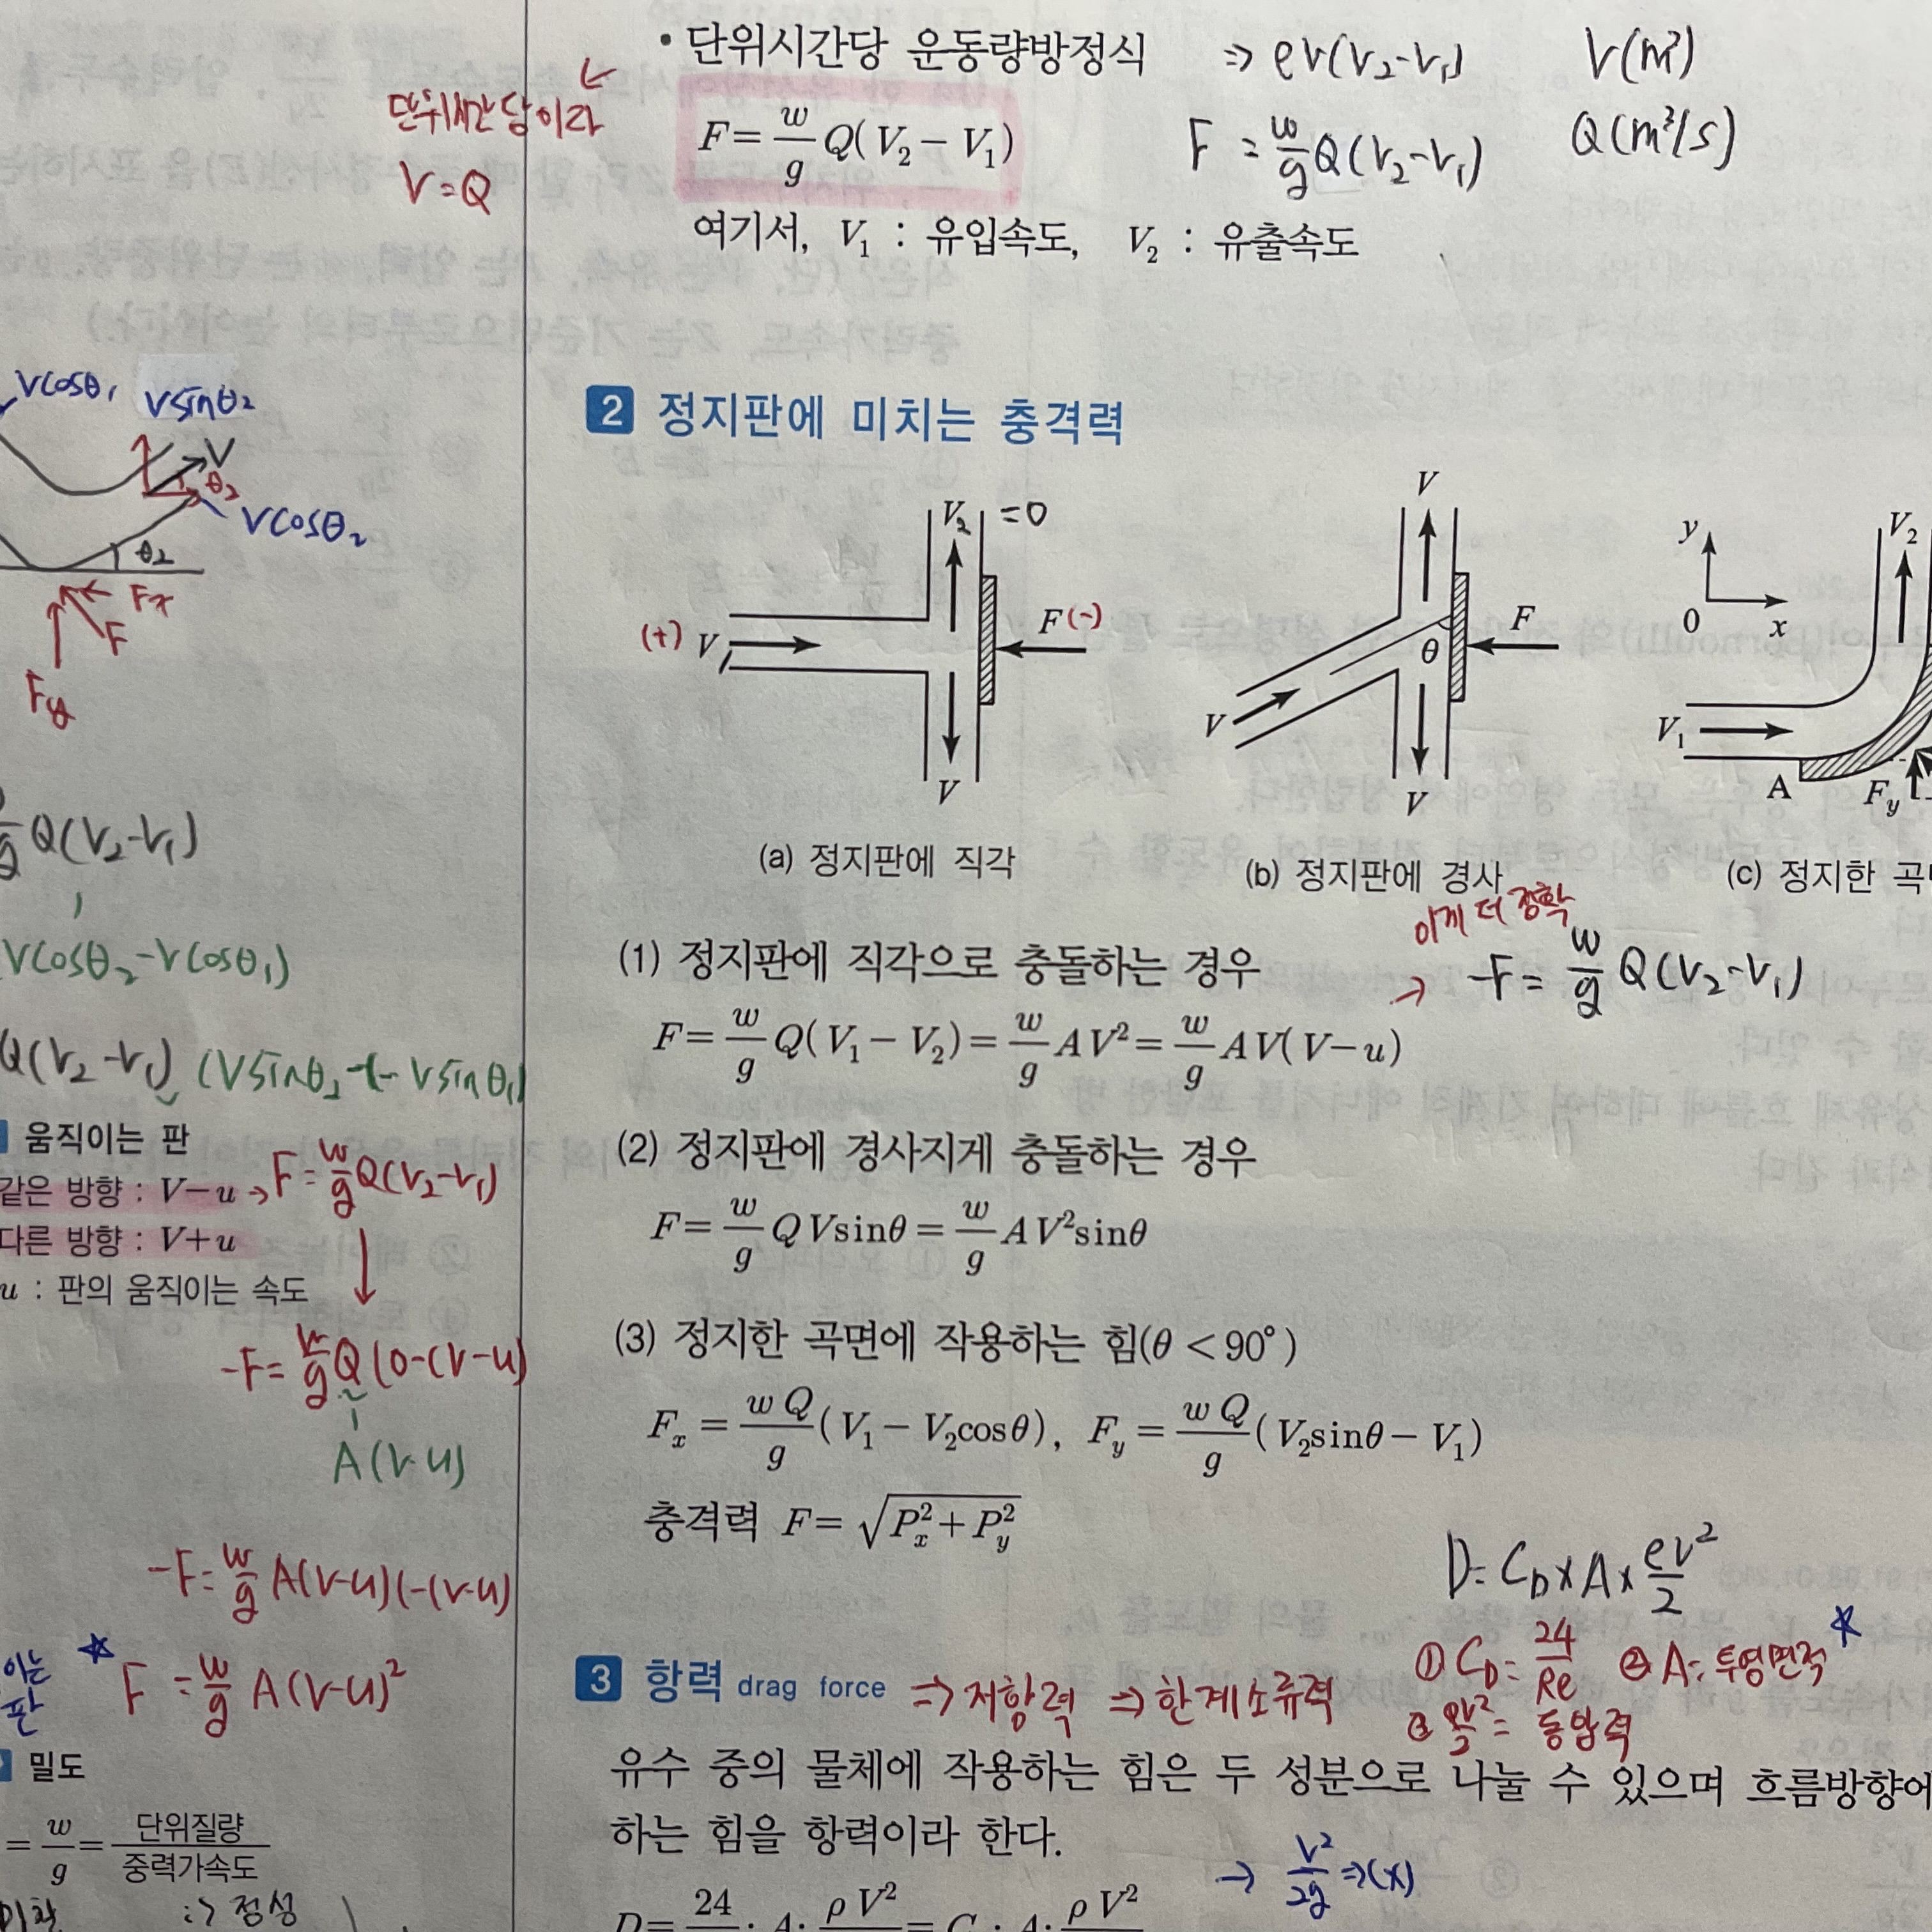 • 단위시간당 운동량방정식 ⇒ ρV(V₂-V₁) V(m³)
단위시간당이라
V=Q
F = w/g Q(V₂ - V₁) F = w/g Q(V₂-V₁) Q(m³/s)
여기서, V₁ : 유입속도, V₂ : 유출속도
Vcosθ₁ Vsinθ₂
V
θ₂
Vcosθ₂
θ₂
Fx
F
Fy
2 정지판에 미치는 충격력
V₂ =0
(+) V₁
F(-)
V
(a) 정지판에 직각
V
F
θ
V
V
(b) 정지판에 경사
y
0 x
V₂
V₁
A
F_y
(c) 정지한 곡
Q(V₂-V₁)
Vcosθ₂-Vcosθ₁)
Q(V₂-V₁) (Vsinθ₂-(-Vsinθ₁)
움직이는 판
같은 방향 : V-u → F = w/g Q(V₂-V₁)
다른 방향 : V+u
u : 판의 움직이는 속도
-F = w/g Q (0-(V-u)
A(V-u)
-F = w/g A(V-u)(-(V-u)
이는
판
☆ F = w/g A(V-u)²
밀도
= w/g = 단위질량/중력가속도
:> 점성
이게 더 정확
(1) 정지판에 직각으로 충돌하는 경우 → -F = w/g Q(V₂-V₁)
F = w/g Q(V₁ - V₂) = w/g AV² = w/g AV(V-u)
(2) 정지판에 경사지게 충돌하는 경우
F = w/g QVsinθ = w/g AV²sinθ
(3) 정지한 곡면에 작용하는 힘(θ < 90°)
F_x = wQ/g (V₁ - V₂cosθ), F_y = wQ/g (V₂sinθ - V₁)
충격력 F = √(P_x² + P_y²)
D = C_D × A × ρV²/2
① C_D = 24/Re ② A = 투영면적 ☆
③ ρV²/2 = 동압력
3 항력 drag force ⇒ 저항력 ⇒ 한계소류력
유수 중의 물체에 작용하는 힘은 두 성분으로 나눌 수 있으며 흐름방향에
하는 힘을 항력이라 한다.
→ V²/2g ⇒(x)
D = 24 · A · ρV² = C · A · ρV²